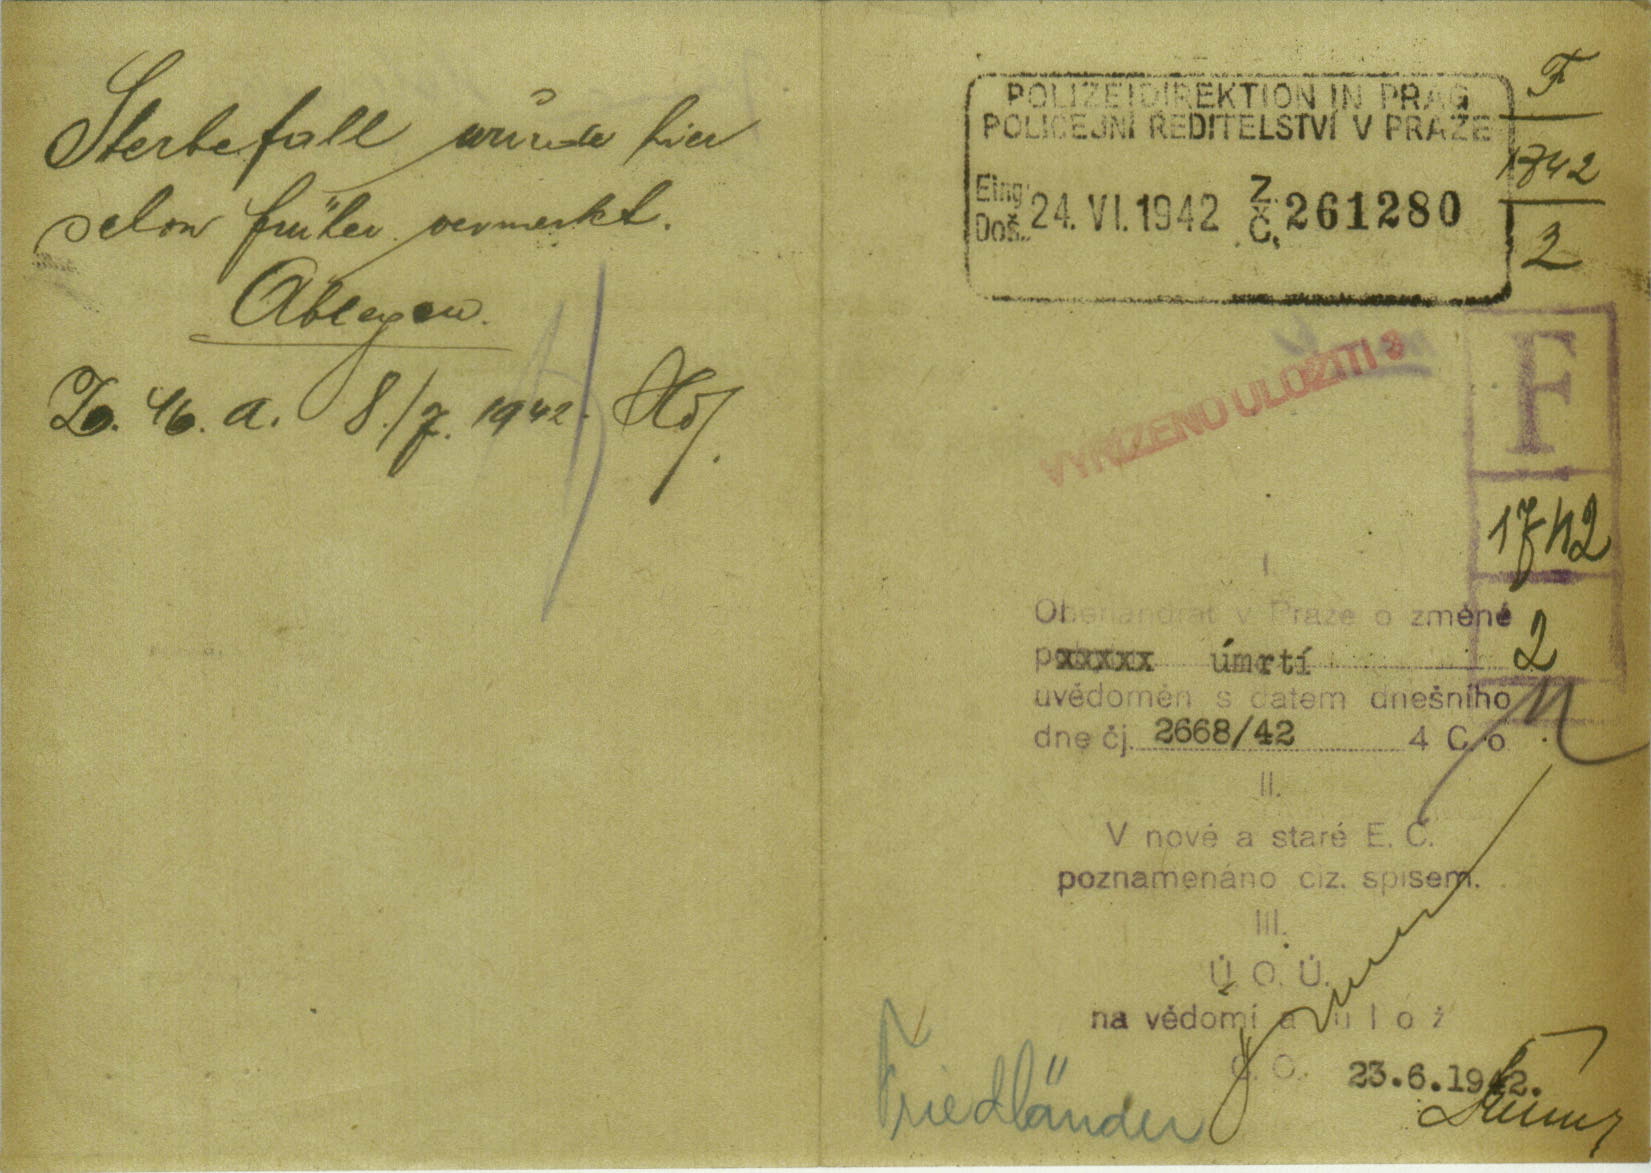 Sterbefall wurde hier
schon früher vermerkt.
Ablegen.
46. a. 8./7. 1942.
POLIZEIDIREKTION IN PRAG
POLICEJNÍ ŘEDITELSTVÍ V PRAZE
Eing. Z.
Doš. 24. VI. 1942 Č. 261280
F
1742
2
VYŘÍZENO ULOŽITI
F
1742
2
I.
Oberlandrat v Praze o změně
xxxxx úmrtí
uvědoměn s datem dnešního
dne čj. 2668/42 4 C/o
II.
V nové a staré E. C.
poznamenáno ciz. spisem.
III.
Ú. O. Ú.
na vědomí a ulož
23.6.1942.
Friedländer